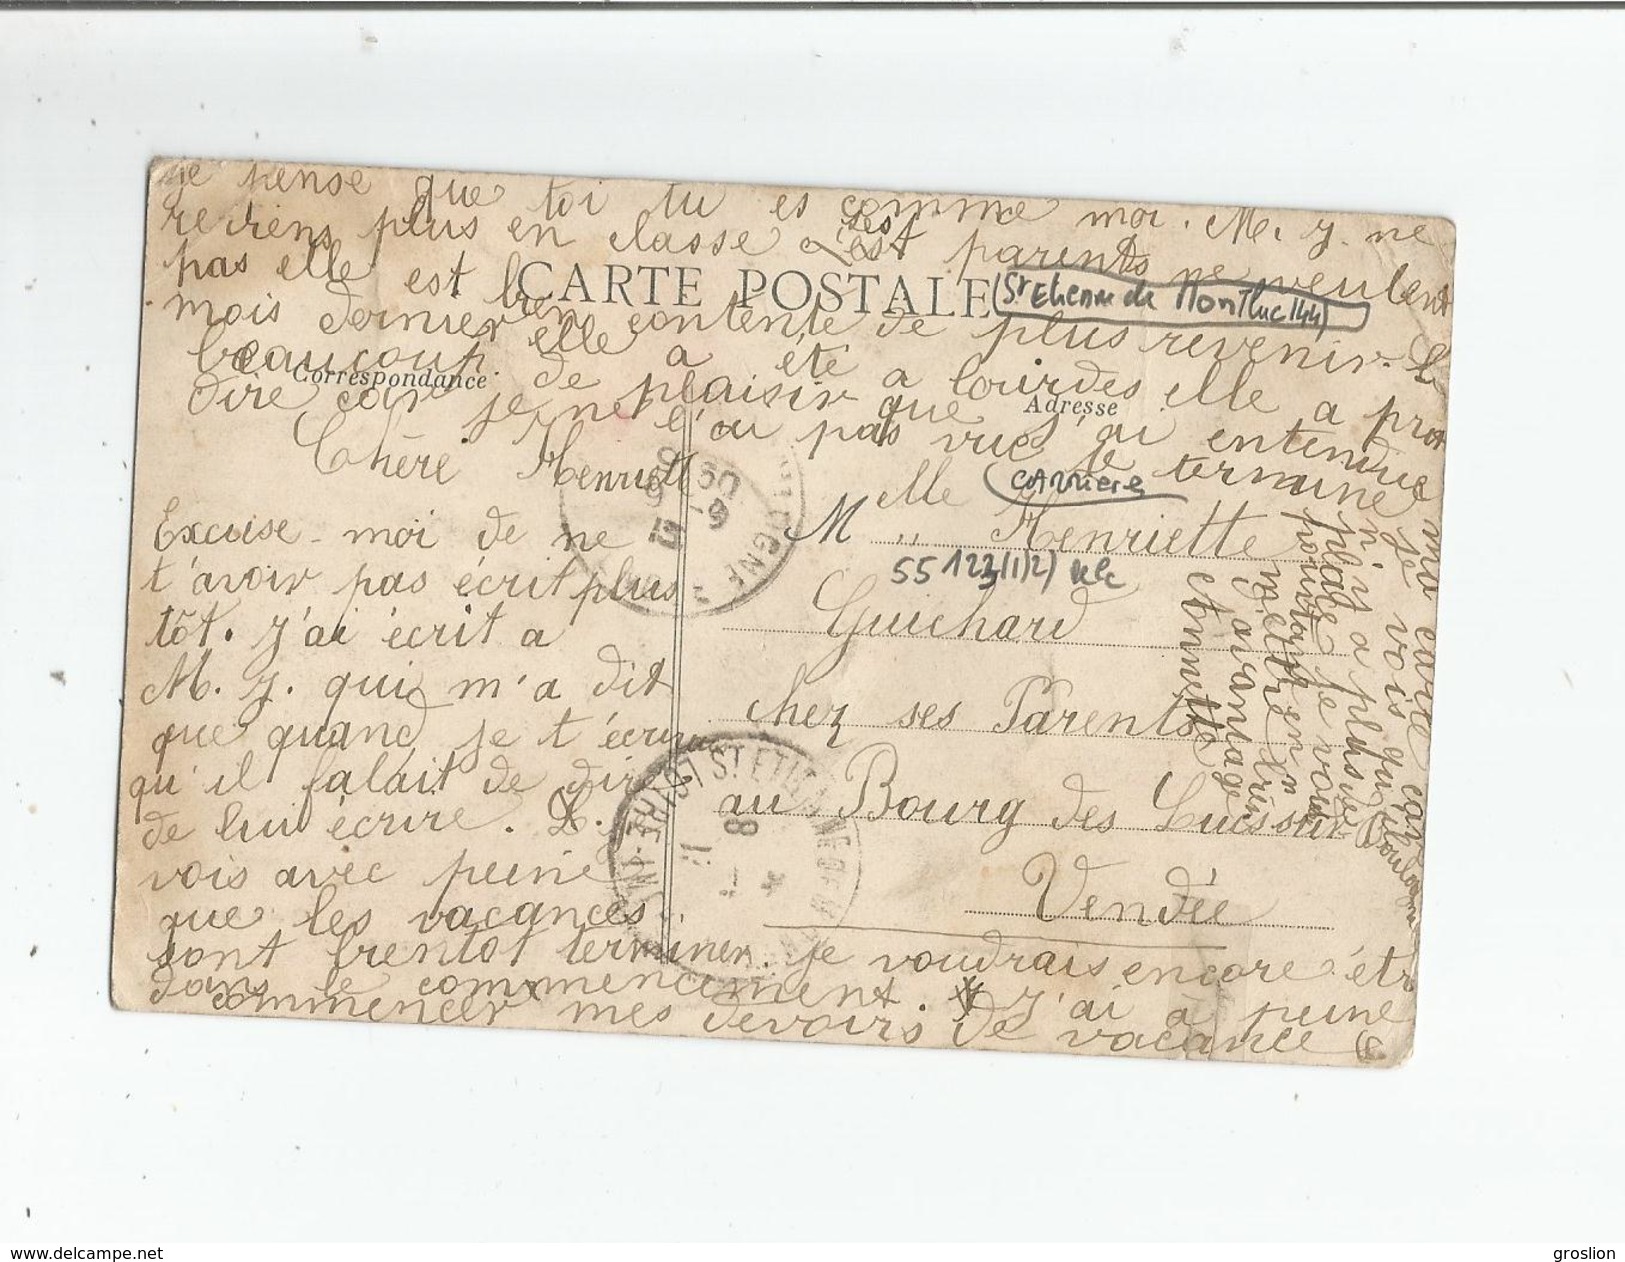 je pense que toi tu es comme moi. M. J. ne
reviens plus en classe ses parents ne veulent
pas elle est bien contente de plus revenir. Le
mois dernier elle a été a lourdes elle a
beaucoup de plaisir que j'ai entendue
dire car je ne l'ai pas vue je termine ma carte car
CARTE POSTALE
St Etienne de Montluc (44)
Correspondance
Adresse
Chère Henriette
Excuse-moi de ne
t'avoir pas écrit plus
tôt. J'ai écrit a
M. J. qui m'a dit
que quand je t'écrirai
qu'il falait de dire
de lui écrire. Je
vois avec peine
que les vacances
sont bientot terminer. Je voudrais encore être
dans le commencement. J'ai a peine
commencer mes devoirs de vacance
Carriere
Melle Henriette
55 123 (1)2)
Guichard
chez ses Parents
au Bourg des Lucs sur
Vendée
je vois qu'il
n'y a plus de
place je voudrais
pourtant en
mettre
d'avantage
Annette
ST ETIENNE DE M
LOIRE-INF
8
11
www.delcampe.net
groslion